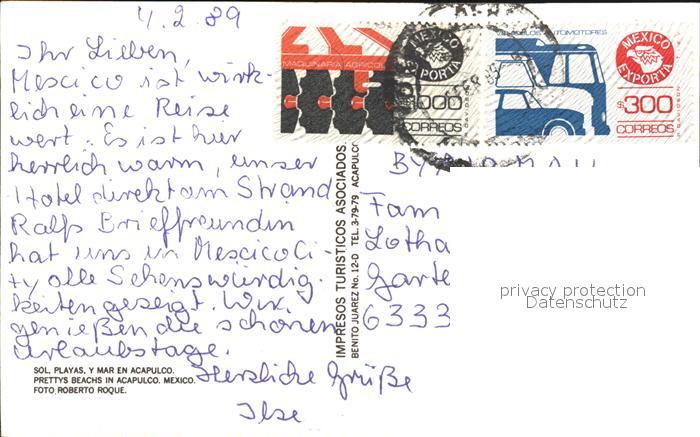 4.2.89
Ihr Lieben,
Mexico ist wirk-
lich eine Reise
wert. Es ist hier
herrlich warm, unser
Hotel direkt am Strand
Ralfs Brieffreundin
hat uns in Mexico Ci-
ty alle Sehenswürdig-
keiten gezeigt. Wir
genießen die schönen
Urlaubstage.
Herzliche Grüße
Ilse
SOL, PLAYAS, Y MAR EN ACAPULCO.
PRETTYS BEACHS IN ACAPULCO. MEXICO.
FOTO ROBERTO ROQUE.
IMPRESOS TURISTICOS ASOCIADOS.
BENITO JUAREZ No. 12-D TEL. 3-79-79 ACAPULCO
MAQUINARIA AGRICOL
MEXICO
EXPORTA
$1000
CORREOS
VEHICULOS AUTOMOTORES
MEXICO
EXPORTA
$300
CORREOS
DAVIDSON
BY
Fam
Lotha
Garte
6333
privacy protection
Datenschutz